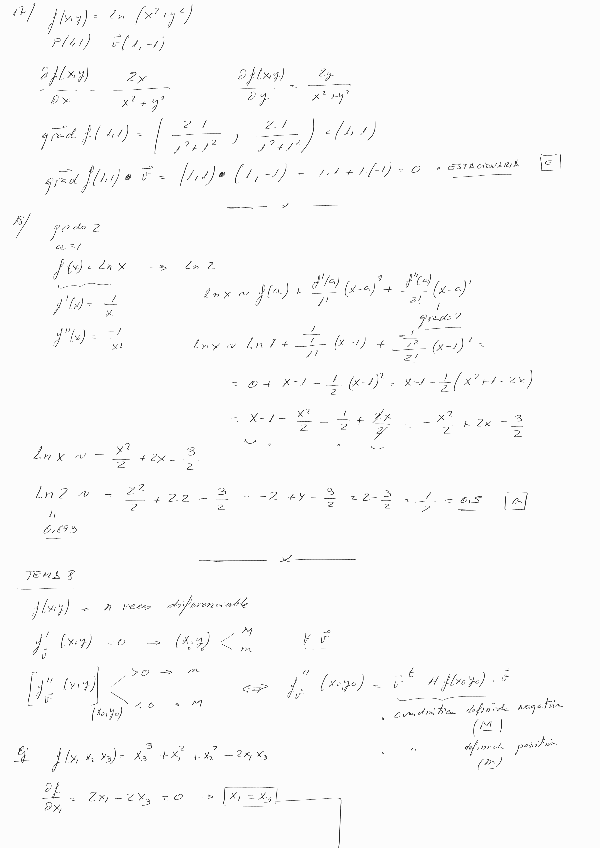 12) f(x,y) = ln (x²+y²)
P(1,1) v⃗(1,-1)
∂f(x,y)/∂x = 2x/(x²+y²) ∂f(x,y)/∂y = 2y/(x²+y²)
grad f(1,1) = (2·1/(1²+1²), 2·1/(1²+1²)) = (1,1)
grad f(1,1) • v⃗ = (1,1) • (1,-1) = 1·1 + 1(-1) = 0 ESTACIONARIA
grado 2
a=1
f(x) = ln x → ln 2
f'(x) = 1/x ln x ≈ f(a) + f'(a)/1! (x-a)¹ + f''(a)/2! (x-a)²
grado 2
f''(x) = -1/x² ln x ≈ ln 1 + (1/1)/1! (x-1) + (-1/1²)/2! (x-1)² =
= 0 + x-1 - 1/2 (x-1)² = x-1 - 1/2 (x²+1-2x)
= x-1 - x²/2 - 1/2 + 2x/2 = -x²/2 + 2x - 3/2
ln x ≈ -x²/2 + 2x - 3/2
ln 2 ≈ -2²/2 + 2·2 - 3/2 = -2+4-3/2 = 2-3/2 = 1/2 = 0.5
0.693
TEMA 8
f(x,y) = n veces diferenciable
f'v⃗ (x,y) = 0 → (x,y) < M m ∀ v⃗
[f''v⃗ (x,y)] (x₀,y₀) >0 → m <0 = M ⟺ f''v⃗ (x₀,y₀) = v⃗ᵗ Hf(x₀,y₀)·v⃗
cuadrática definida negativa
(M)
" definida positiva
(m)
Ej f(x₁ x₂ x₃) = x₃³ + x₁² + x₂² - 2x₁x₃
∂f/∂x₁ = 2x₁ - 2x₃ = 0 → x₁ = x₃